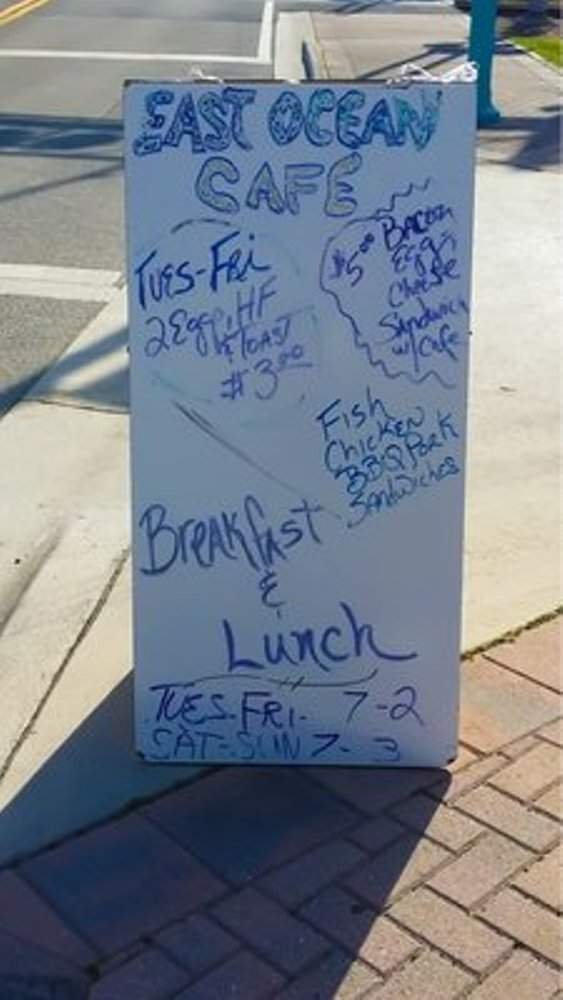 EAST OCEAN
CAFE
TUES-FRI
2 Eggs, HF
& TOAST
$3.00
$5.00 BACON
Eggs
Cheese
Sandwich
w/ Cafe
Fish
Chicken
BBQ Pork
Sandwiches
Breakfast
&
Lunch
TUES-FRI- 7-2
SAT-SUN 7-3